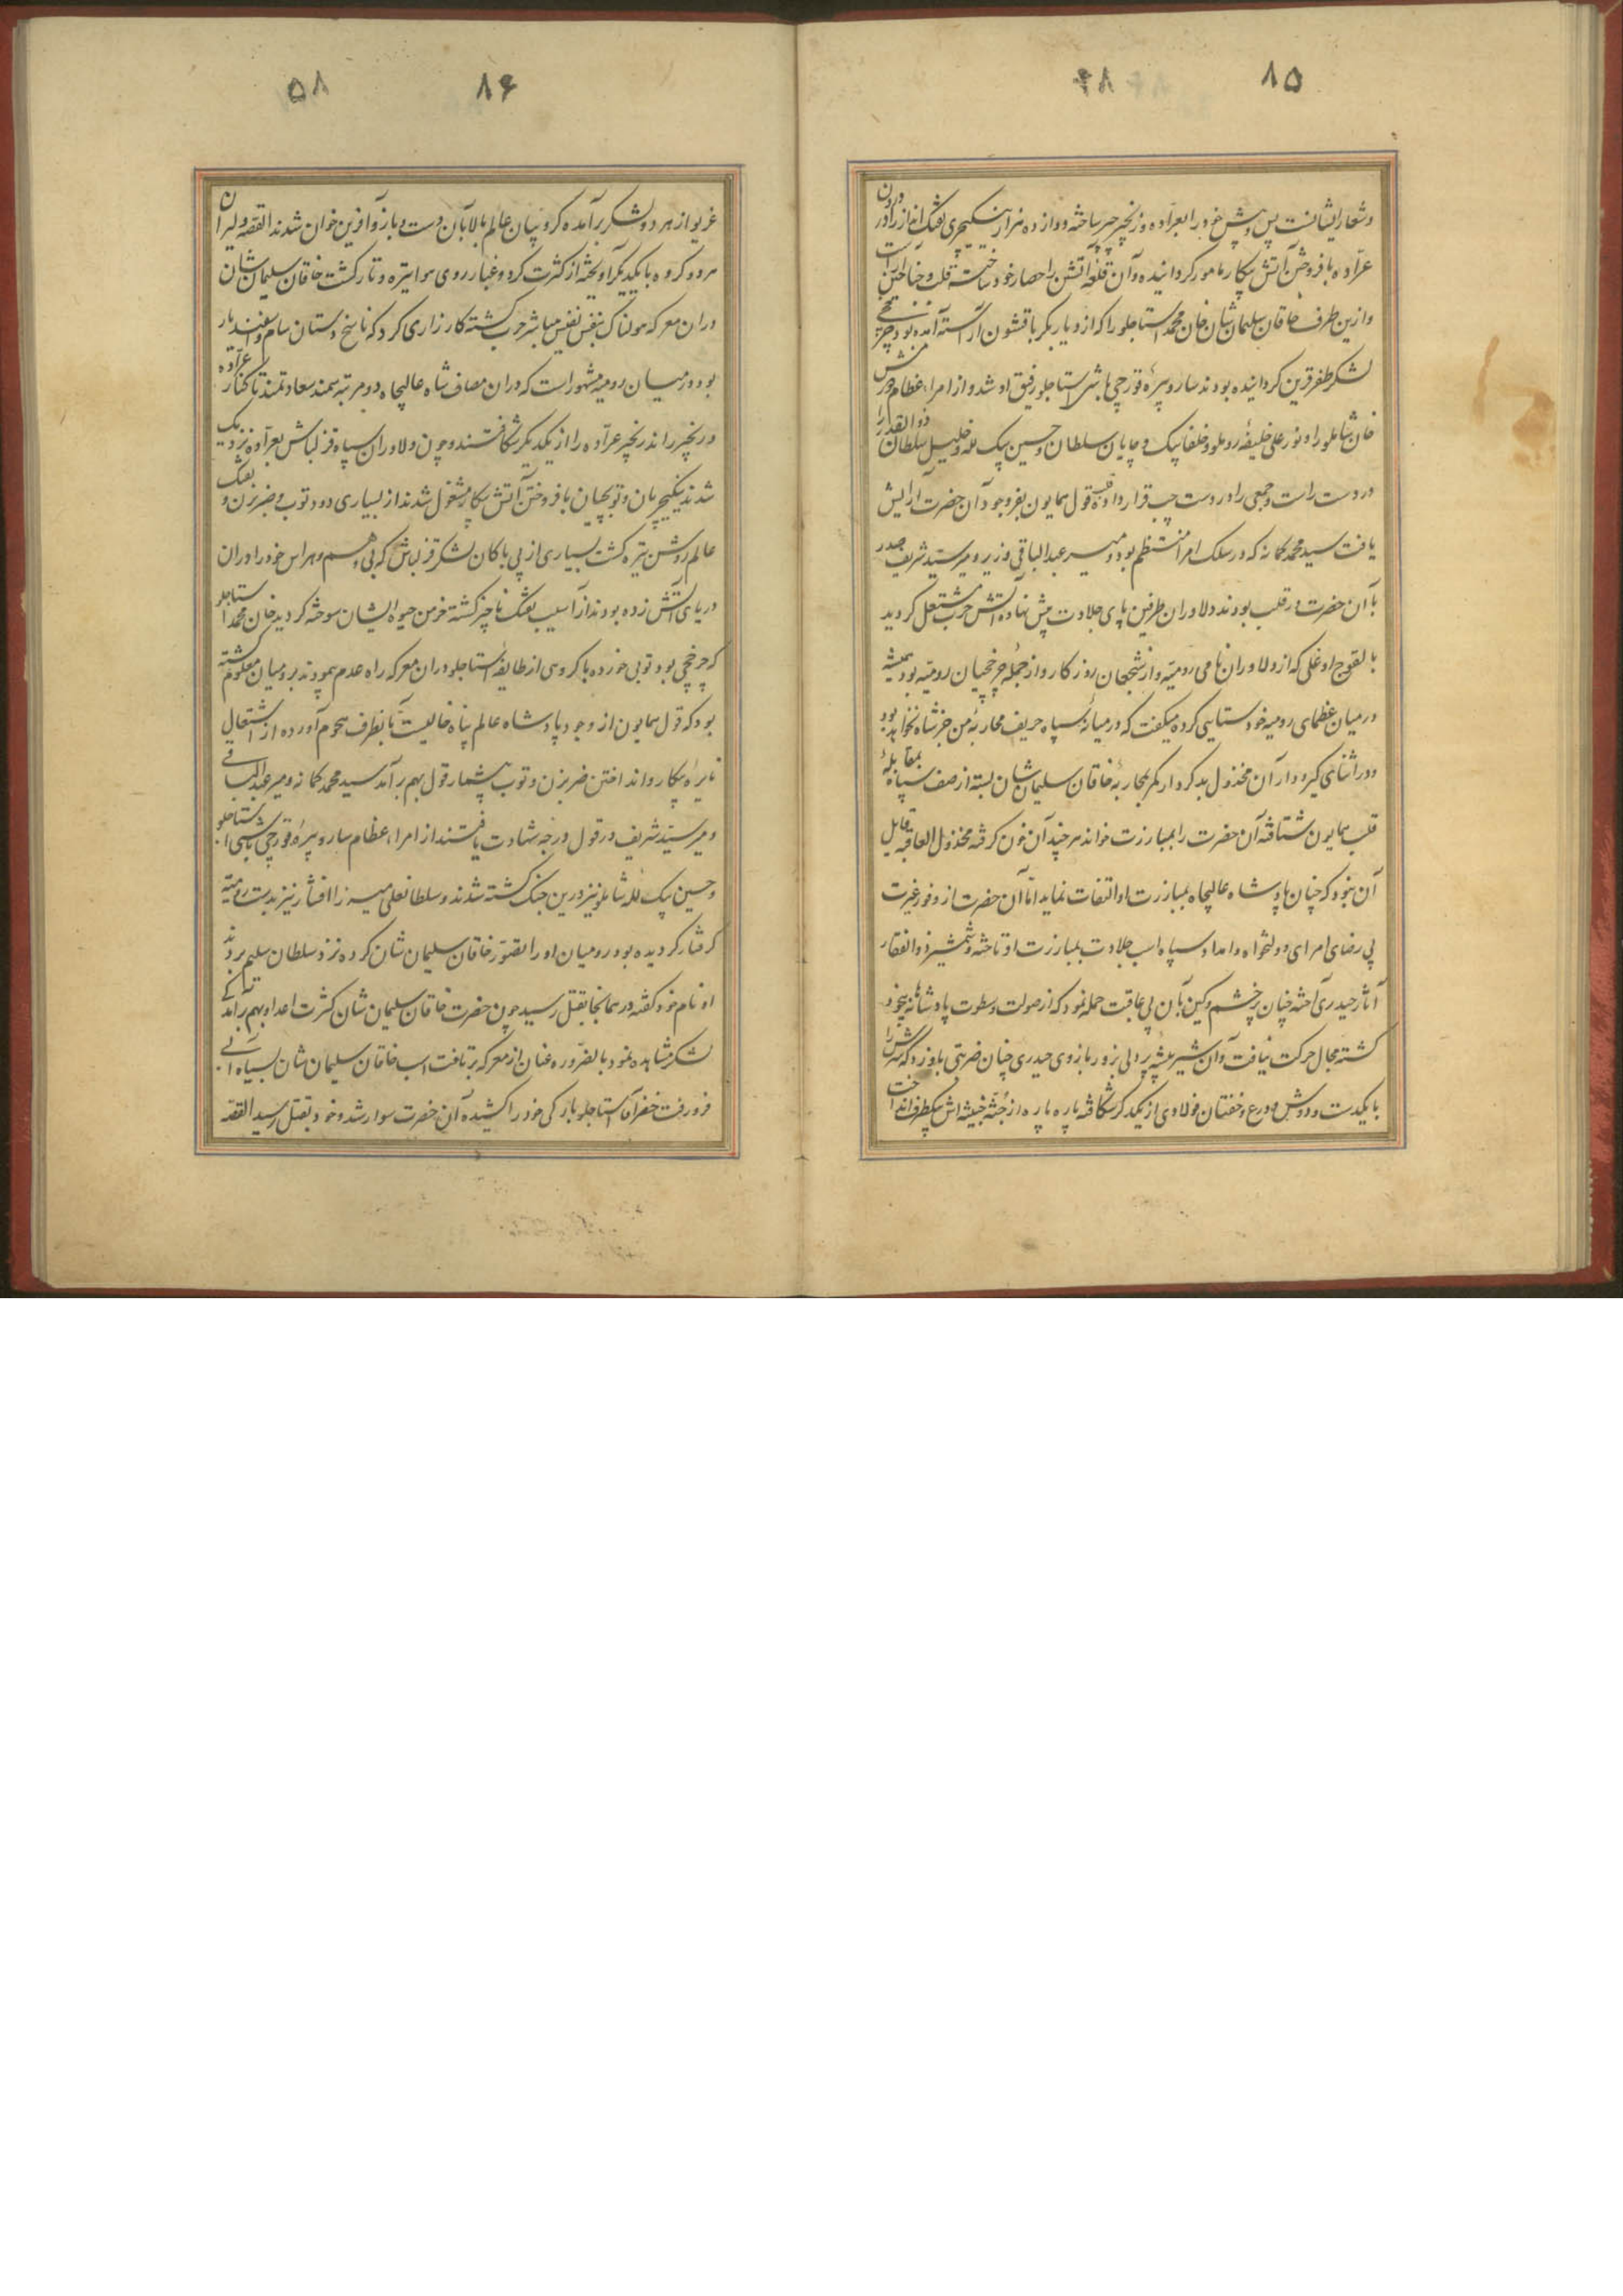 ۸۵
۴۸
وشعار ایشانست پس و پیش خود را بعراده و زنجیر چپر ساخته دوازده هزار ینکیچری تفنک انداز را در درون
عراده بافروختن آتش پیکار مامور کردانیده و آن قلعه آتش را حصار خود ساخته قلب و جناحین آراست
وازین طرف خاقان سلیمان شان خان محمد استاجلو را که از دیار بکر با قشون آراسته آمده بود چرخچی
لشکر ظفر قرین کردانیده بودند ساروپیره قورچی باشی استاجلو رفیق او شد و از امراء عظام درمش
خان شاملو را و نور علی خلیفه روملو و خلفا بیک و چایان سلطان و حسین بیک لله و خلیل سلطان ذوالقدر را
در دست راست و جمعی را در دست چپ قرار داده قول همایون بفر وجود آن حضرت آرایش
یافت سید محمد کمانه که در سلک امرا منتظم بود و میر عبدالباقی وزیر و میر سید شریف صدر
با آن حضرت در قلب بودند دلاوران طرفین پای جلادت پیش نهاده آتش حرب مشتعل کردید
بالقوج اوغلی که از دلاوران نامی رومیه و از شجعان روزکار و از جمله چرخچیان رومیه بود همیشه
در میان عظمای رومیه خودستایی کرده میکفت که در میانه سپاه حریف محاربه من جز شاه نخواهد بود
و در اثنای کیرودار آن مخذول بدکردار کمر بمحاربه خاقان سلیمان شان بسته از صف سپاه بمقابله
قلب همایون شتافته آن حضرت را بمبارزت خواند هر چند آن خون کرفته مخذول العاقبه قابل
آن نبود که چنان پادشاه عالیجاه بمبارزت او التفات نماید اما آن حضرت از وفور غیرت
بی رضای امرای دولتخواه و امداد سپاه اسب جلادت بمبارزت او تاخته و شمشیر ذوالفقار
آثار حیدری آخته چنان پرخشم و کین بآن بی عاقبت حمله نمود که از صولت و سطوت پادشاهانه بیخود
کشته مجال حرکت نیافت و آن شیر بیشه پردلی بزور بازوی حیدری چنان ضربتی باو زد که سرش را
با یکدست و دوش و درع و خفتان فولادی از یکدکر شکافته پاره پاره از جثه خبیثه اش بیکطرف انداخت
۸۶
۵۸
غریو از هر دو لشکر برآمده کروبیان عالم بالا بآن دست و بازو آفرین خوان شدند القصه دلیران
هر دو کروه با یکدیکر آویخته از کثرت کرد و غبار روی هوا تیره و تار کشت خاقان سلیمان شان
در آن معرکه هولناک بنفس نفیس مباشر حرب کشته کارزاری کرد که ناسخ دستان سام و اسفندیار
بود و در میان رومیه مشهور است که در آن مصاف شاه عالیجاه دو مرتبه سمند سعادتمند تا کنار عراده
و زنجیر رانده زنجیر عراده را از یکدیکر شکافتند و چون دلاوران سپاه قزلباش بعراده نزدیک
شدند ینکیچریان و توپچیان بافروختن آتش پیکار مشغول شدند از بسیاری دود توپ و ضربزن و تفنک
عالم روشن تیره کشت بسیاری از بی باکان لشکر قزلباش که بی وهم و هراس خود را در آن
دریای آتش زده بودند از آسیب تفنک ناچیز کشته خرمن حیوه ایشان سوخته کردید خان محمد استاجلو
که چرخچی بود توپی خورده با کروهی از طایفه استاجلو در آن معرکه راه عدم پیمودند بر رومیان معلوم کشته
بود که قول همایون از وجود پادشاه عالم پناه خالیست بآنطرف هجوم آورده از اشتعال
نایره پیکار و انداختن ضربزن و توپ بیشمار قول بهم برآمد سید محمد کمانه و میر عبدالباقی
و میر سید شریف در قول درجه شهادت یافتند از امراء عظام ساروپیره قورچی باشی استاجلو
و حسین بیک لله شاملو نیز درین جنک کشته شدند و سلطانعلی میرزا افشار نیز بدست رومیه
کرفتار کردیده بود رومیان او را بتصور خاقان سلیمان شان کرده نزد سلطان سلیم بردند
او نام خود کفته در همانجا بقتل رسید چون حضرت خاقان سلیمان شان کثرت اعدا و بهم برآمدکی
لشکر مشاهده نمود بالضروره عنان از معرکه برتافت اسب خاقان سلیمان شان بسیاه آبی
فرو رفت خضر آقا استاجلو بارکی خود را کشیده آن حضرت سوار شد و خود بقتل رسید القصه